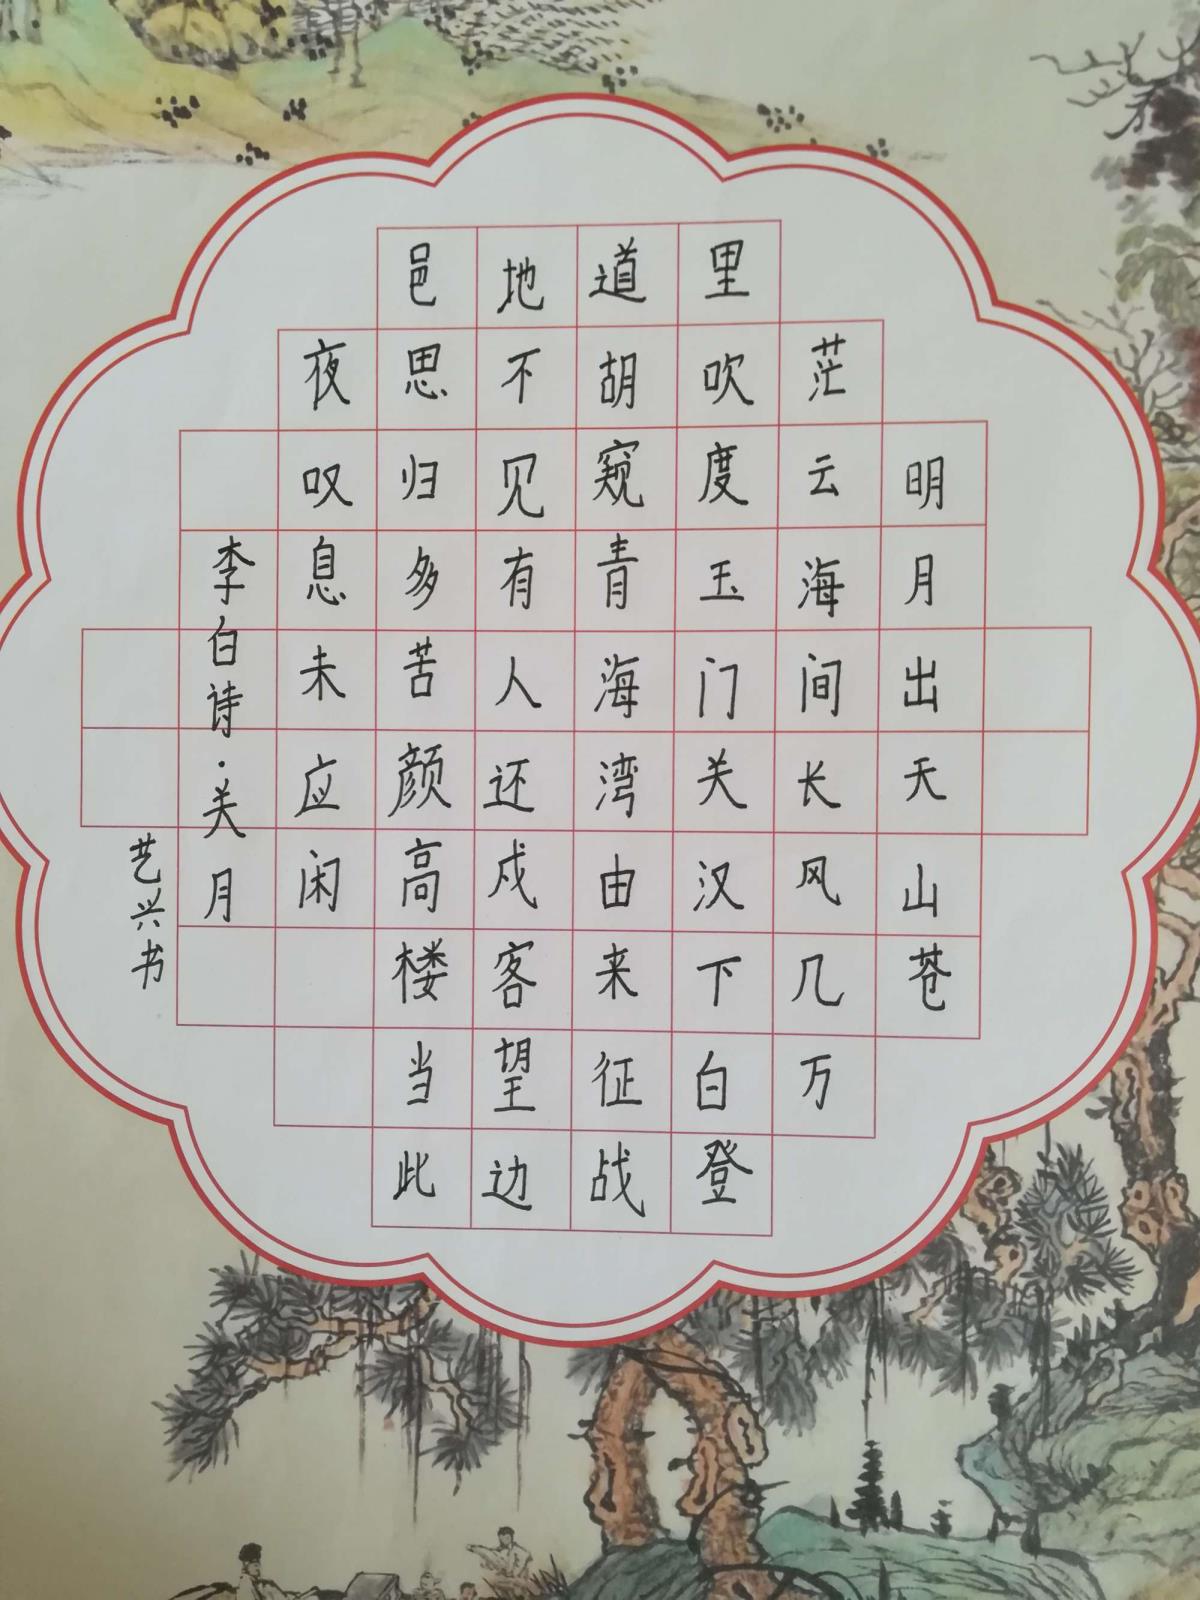 明月出天山苍
茫云海间长风几万
里吹度玉门关汉下白登
道胡窥青海湾由来征战
地不见有人还戍客望边
邑思归多苦颜高楼当此
夜叹息未应闲
李白诗·关月
艺兴书